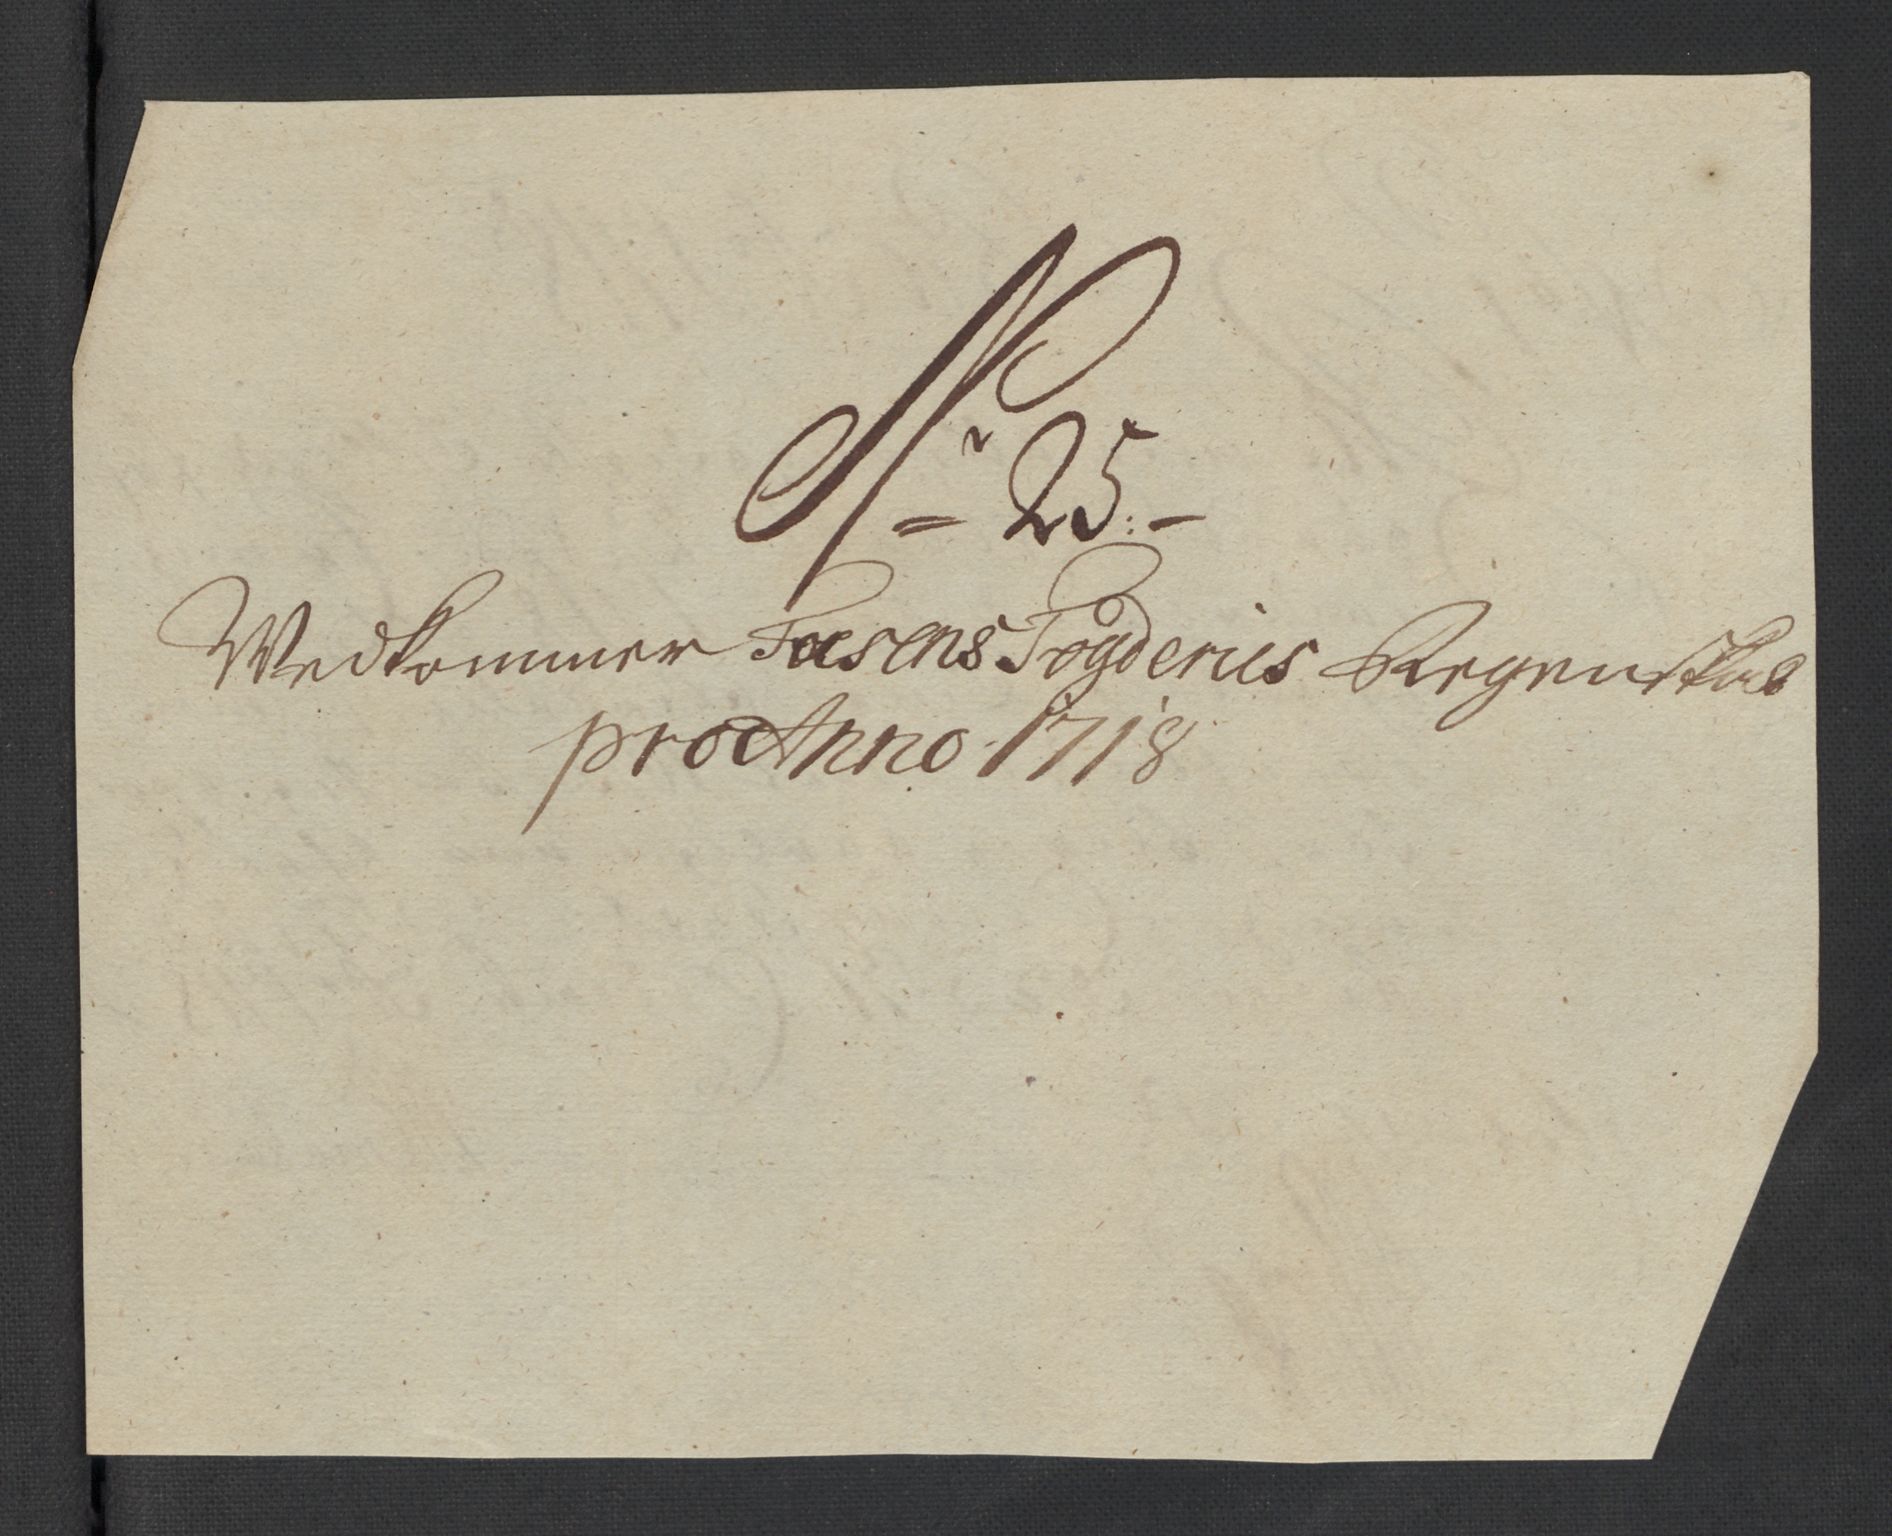 Nr 25.-
Wedkommer Fosens Fogderies Regenskab
pro Anno 1718